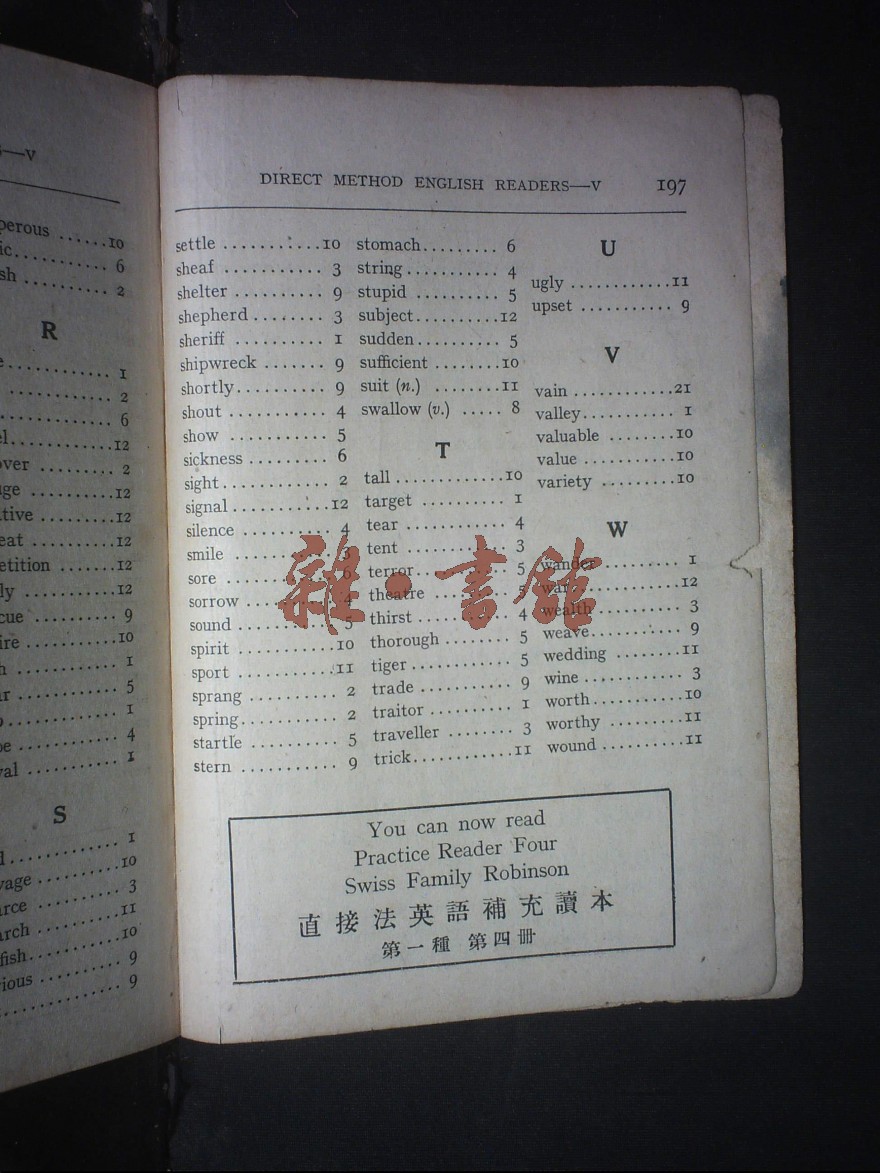 s—V
perous ......10
ic........... 6
sh .......... 2
R
e............ 1
............. 2
............. 6
el............12
over ......... 2
uge ..........12
tive .........12
eat ..........12
petition .....12
ly ...........12
cue .......... 9
ire ..........10
h ............ 1
ar ........... 5
............. 1
pe ........... 4
val .......... 1
S
d............ 1
vage .........10
arce ......... 3
arch .........11
fish..........10
rious ........ 9
............. 9
DIRECT METHOD ENGLISH READERS—V 197
settle ...........10
sheaf ........... 3
shelter .......... 9
shepherd ........ 3
sheriff .......... 1
shipwreck ....... 9
shortly.......... 9
shout ........... 4
show ........... 5
sickness ......... 6
sight............ 2
signal ...........12
silence .......... 4
smile ........... 3
sore ............ 6
sorrow .......... 4
sound ........... 5
spirit ...........10
sport ...........11
sprang .......... 2
spring........... 2
startle .......... 5
stern ........... 9
stomach......... 6
string........... 4
stupid .......... 5
subject..........12
sudden.......... 5
sufficient ........10
suit (n.) ........11
swallow (v.) ..... 8
T
tall .............10
target .......... 1
tear ............ 4
tent ............ 3
terror........... 5
theatre ......... 5
thirst ........... 4
thorough ........ 5
tiger............ 5
trade ........... 9
traitor .......... 1
traveller ........ 3
trick............11
U
ugly ............11
upset ........... 9
V
vain ............21
valley........... 1
valuable ........10
value ...........10
variety ..........10
W
wander .......... 1
............12
wealth .......... 3
weave........... 9
wedding ........11
wine ............ 3
worth...........10
worthy .........11
wound ..........11
雜·書館
You can now read
Practice Reader Four
Swiss Family Robinson
直接法英語補充讀本
第一種 第四冊